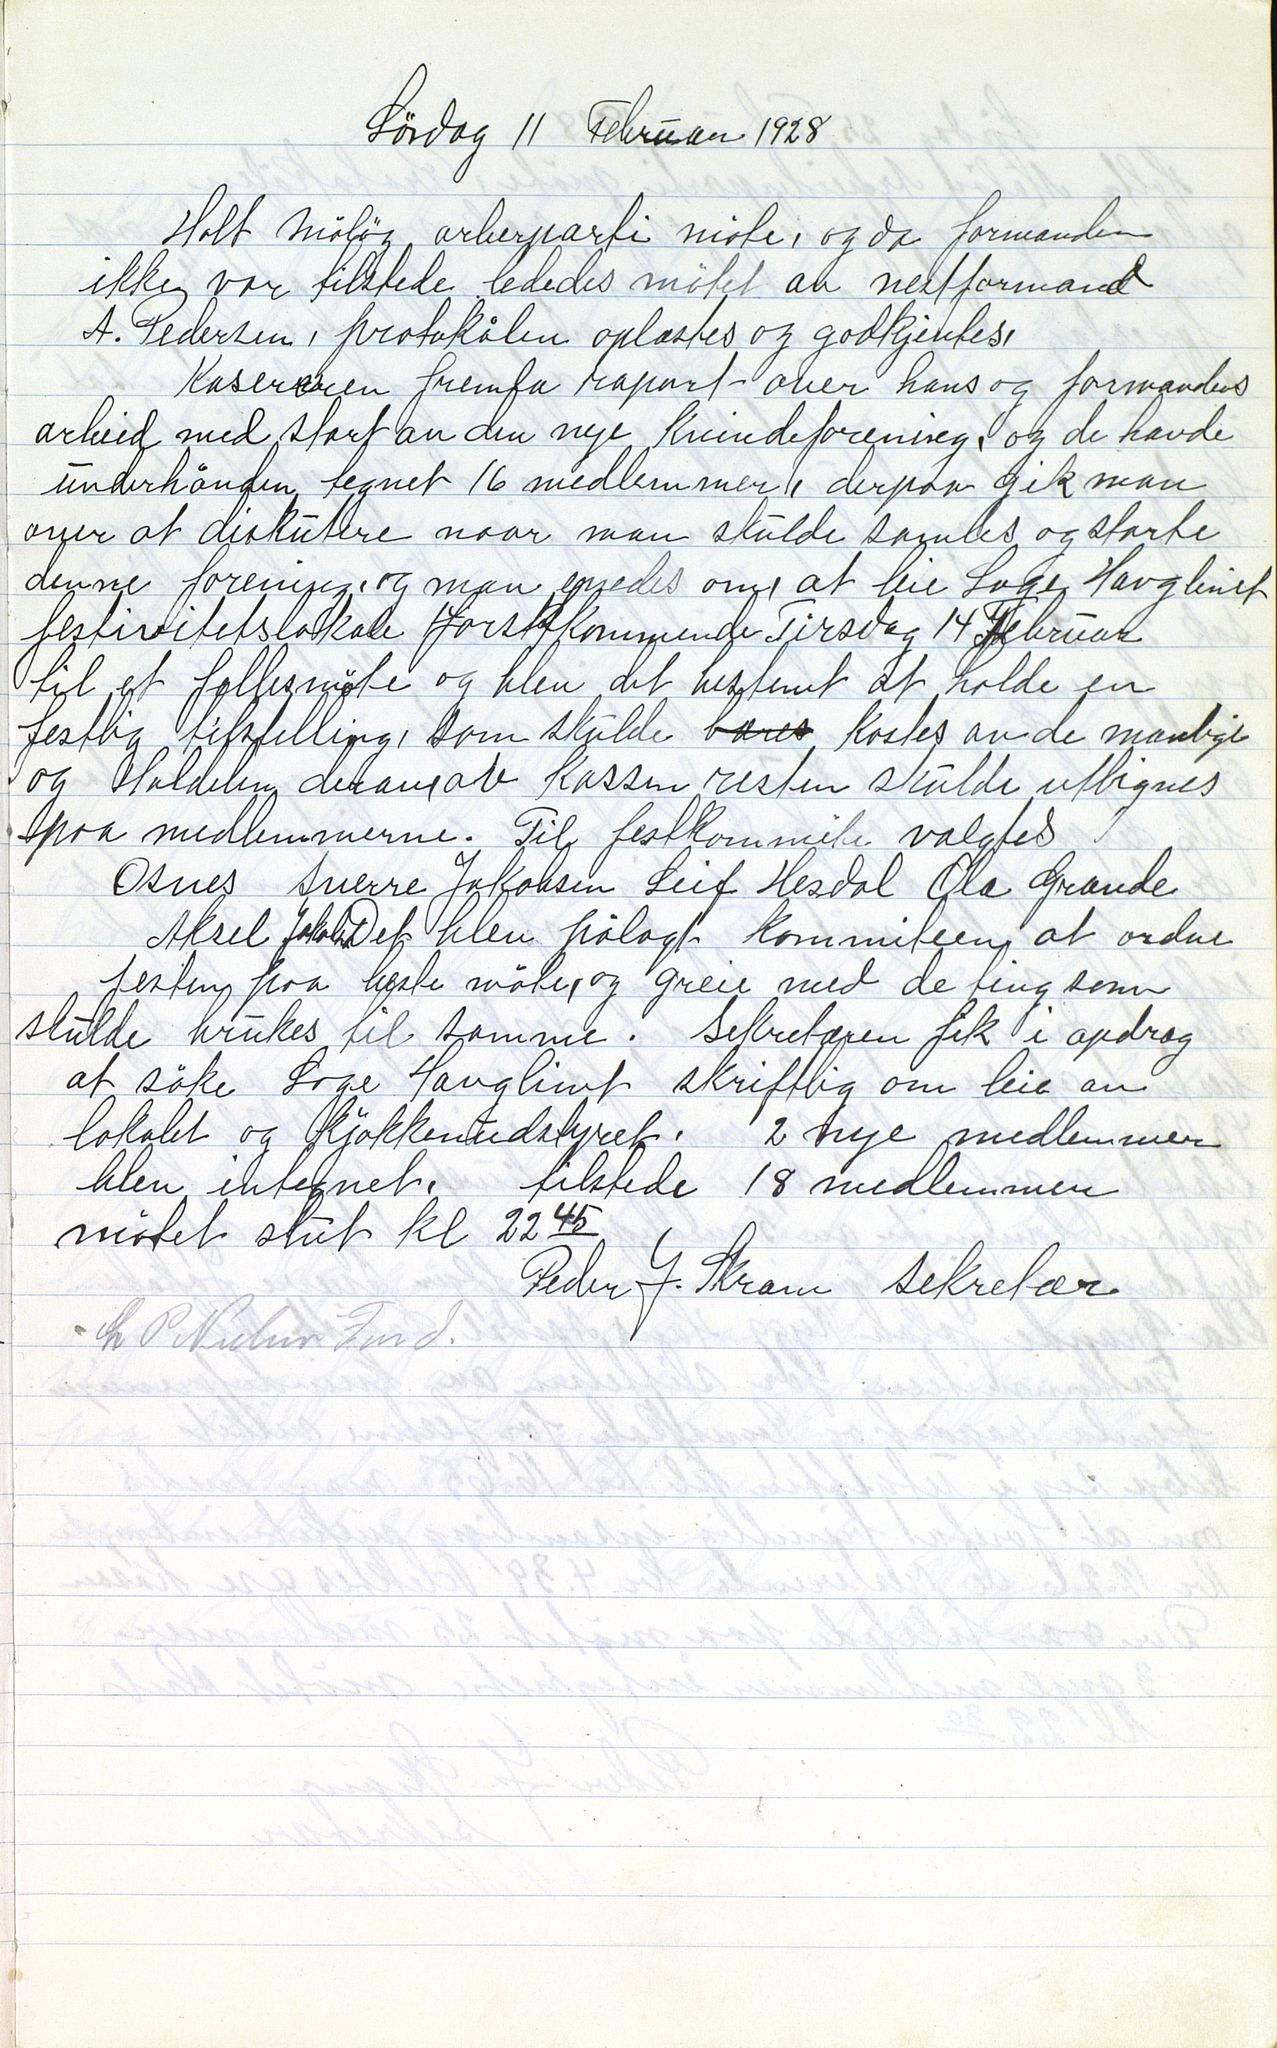 Lördag 11 Februar 1928
Holt Målög arberparti möte, og da formanden
ikke var tilstede lededes mötet av nestformand
A. Pedersen, protokålen oplæstes og godkjentes,
Kasereren fremla raport over hans og formandens
arbeid med start av den nye Kvindeforening, og de havde
underhånden tegnet 16 medlemmer, derpaa gik man
over at diskutere naar man skulde samles og starte
denne forening, og man enedes om, at leie Loge Havglimt
festivitetslokale förstkommende Tirsdag 14 Februar
til et fellesmöte og blev det bestemt at holde en
festlig tilstelling, som skulde bæres kostes av de manlige
og Haldelen derav, av Kassen resten skulde utlignes
paa medlemmerne. Til festkommite valgtes
Osnes Sverre Jakobsen Leif Hesdal Ola Grande
Aksel Jakobs Det blev pålagt kommiteen at ordne
festen paa beste måte, og greie med de ting som
skulde brukes til samme. Sekretæren fik i opdrag
at söke Loge Havglimt skriftlig om leie av
lokalet og kjökkenudstyret. 2 nye medlemmer
blev integnet, tilstede 18 medlemmer
mötet slut kl 22 45
Peder J. Skram sekretær
P Nielsen Fmd.